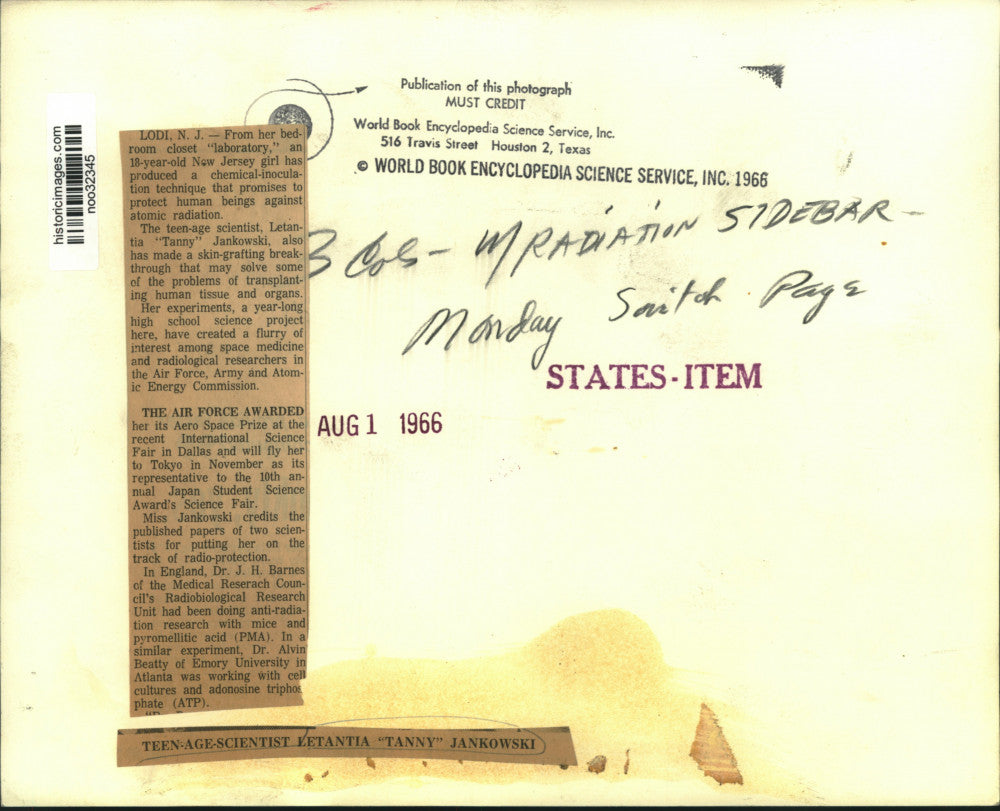 Publication of this photograph
MUST CREDIT
World Book Encyclopedia Science Service, Inc.
516 Travis Street Houston 2, Texas
© WORLD BOOK ENCYCLOPEDIA SCIENCE SERVICE, INC. 1966
historicimages.com
noo32345
3 Cols - W/RADIATION SIDEBAR -
Monday Switch Page
STATES-ITEM
AUG 1 1966
LODI, N. J. — From her bed-
room closet "laboratory," an
18-year-old New Jersey girl has
produced a chemical-inocula-
tion technique that promises to
protect human beings against
atomic radiation.
The teen-age scientist, Letan-
tia "Tanny" Jankowski, also
has made a skin-grafting break-
through that may solve some
of the problems of transplant-
ing human tissue and organs.
Her experiments, a year-long
high school science project
here, have created a flurry of
interest among space medicine
and radiological researchers in
the Air Force, Army and Atom-
ic Energy Commission.
THE AIR FORCE AWARDED
her its Aero Space Prize at the
recent International Science
Fair in Dallas and will fly her
to Tokyo in November as its
representative to the 10th an-
nual Japan Student Science
Award's Science Fair.
Miss Jankowski credits the
published papers of two scien-
tists for putting her on the
track of radio-protection.
In England, Dr. J. H. Barnes
of the Medical Reserach Coun-
cil's Radiobiological Research
Unit had been doing anti-radia-
tion research with mice and
pyromellitic acid (PMA). In a
similar experiment, Dr. Alvin
Beatty of Emory University in
Atlanta was working with cell
cultures and adonosine triphos
phate (ATP).
TEEN-AGE-SCIENTIST LETANTIA "TANNY" JANKOWSKI